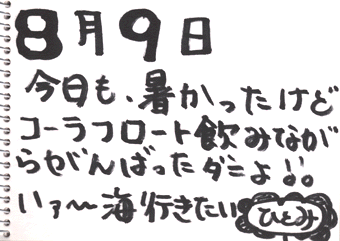 8月9日
今日も、暑かったけど
コーラフロート飲みなが
らがんばったダニよ!!
いァ〜海行きたい
ひとみ